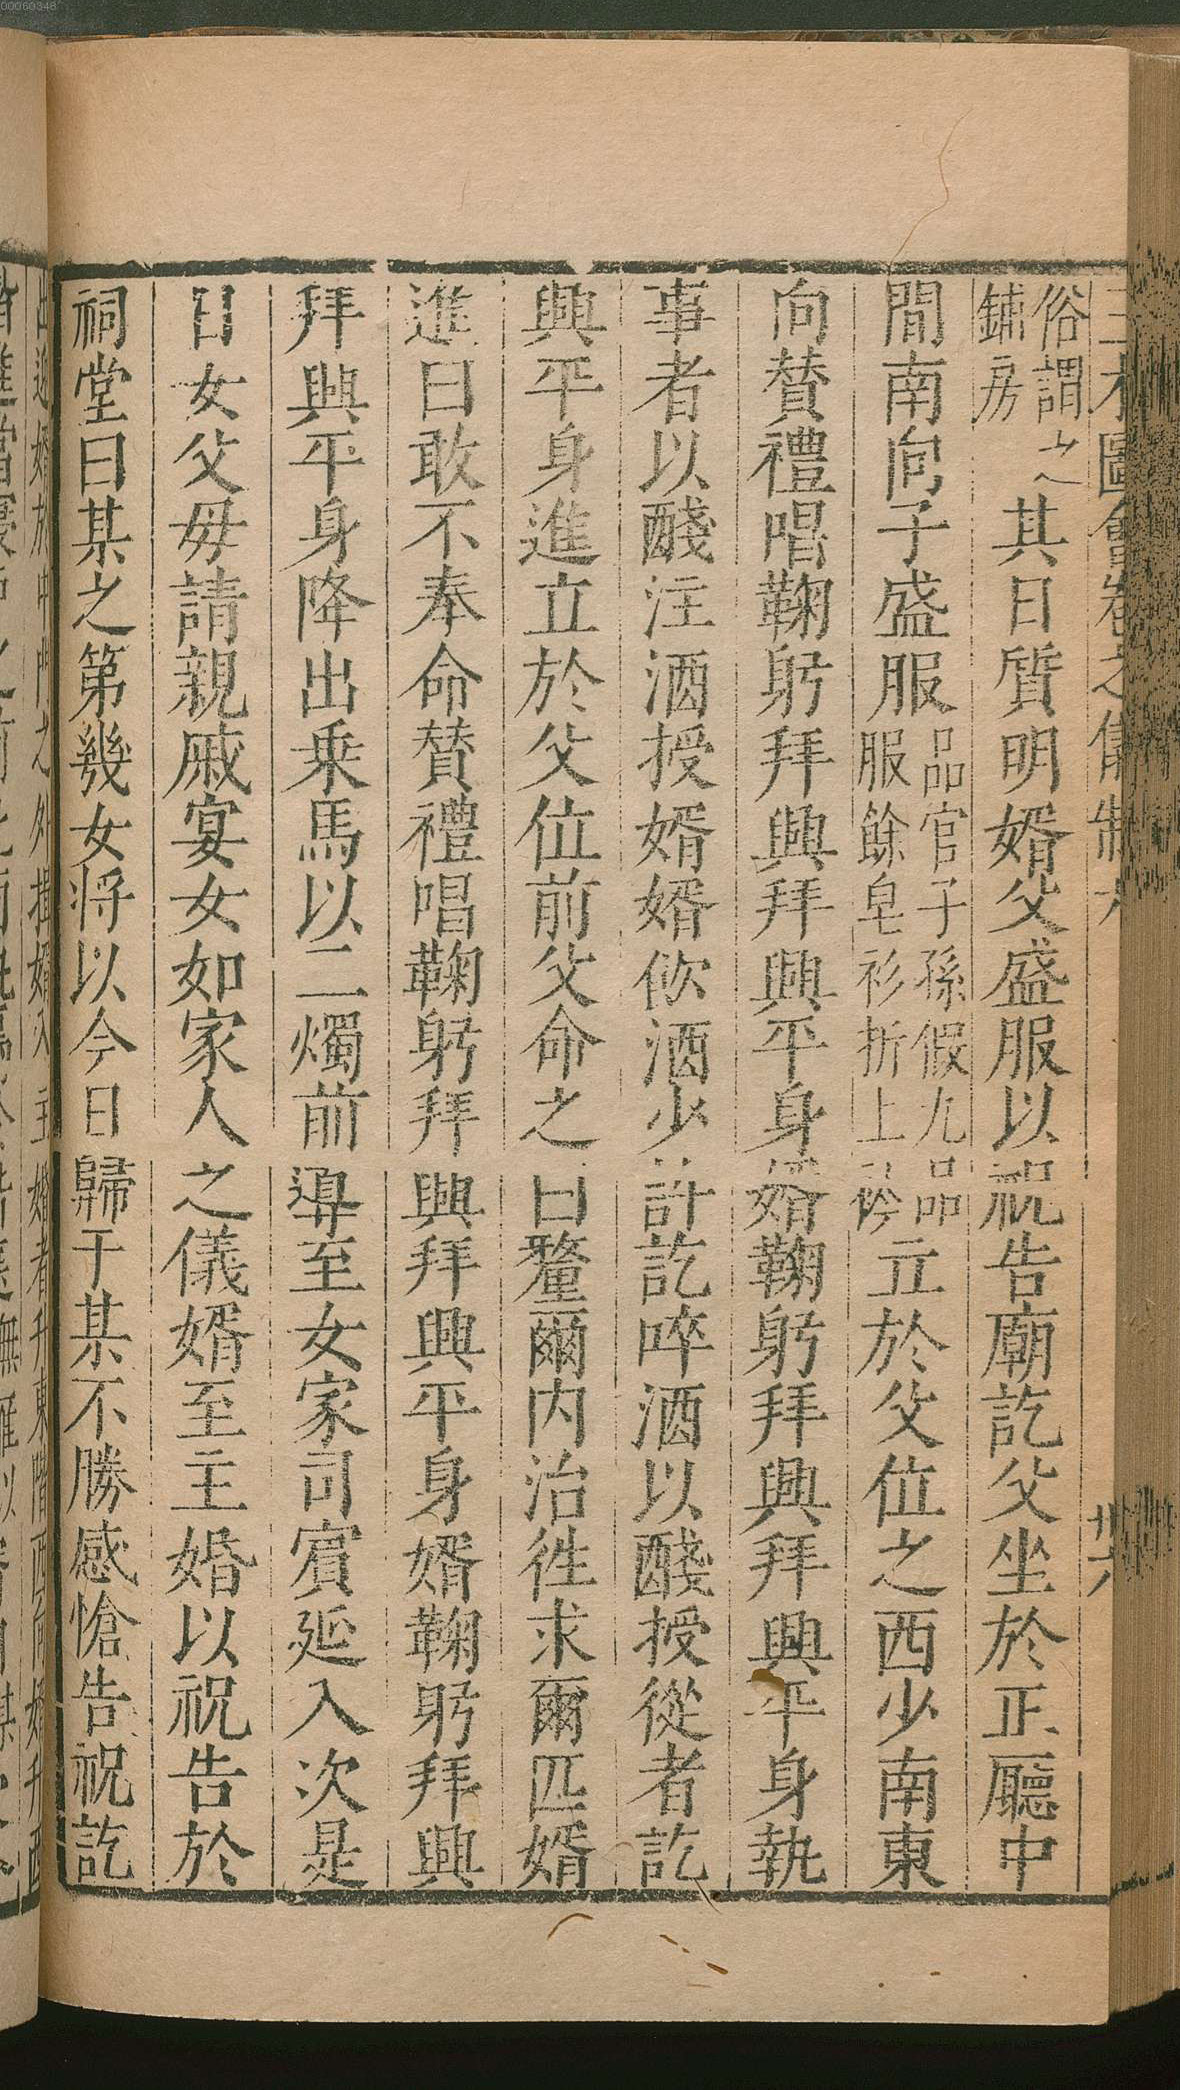 俗謂之
鋪房
其日質明婿父盛服以祝告廟訖父坐於正廳中
間南向子盛服
品官子孫假九品
服餘皂衫折上衿
立於父位之西少南東
向贊禮唱鞠躬拜興拜興平身婿鞠躬拜興拜興平身執
事者以醆注酒授婿婿飲酒少許訖啐酒以醆授從者訖
興平身進立於父位前父命之曰釐爾内治徃求爾匹婿
進曰敢不奉命贊禮唱鞠躬拜興拜興平身婿鞠躬拜興
拜興平身降出乗馬以二燭前導至女家司賓延入次是
日女父母請親戚宴女如家人之儀婿至主婚以祝告於
祠堂曰某之第幾女将以今日歸于某不勝感愴告祝訖
00060348